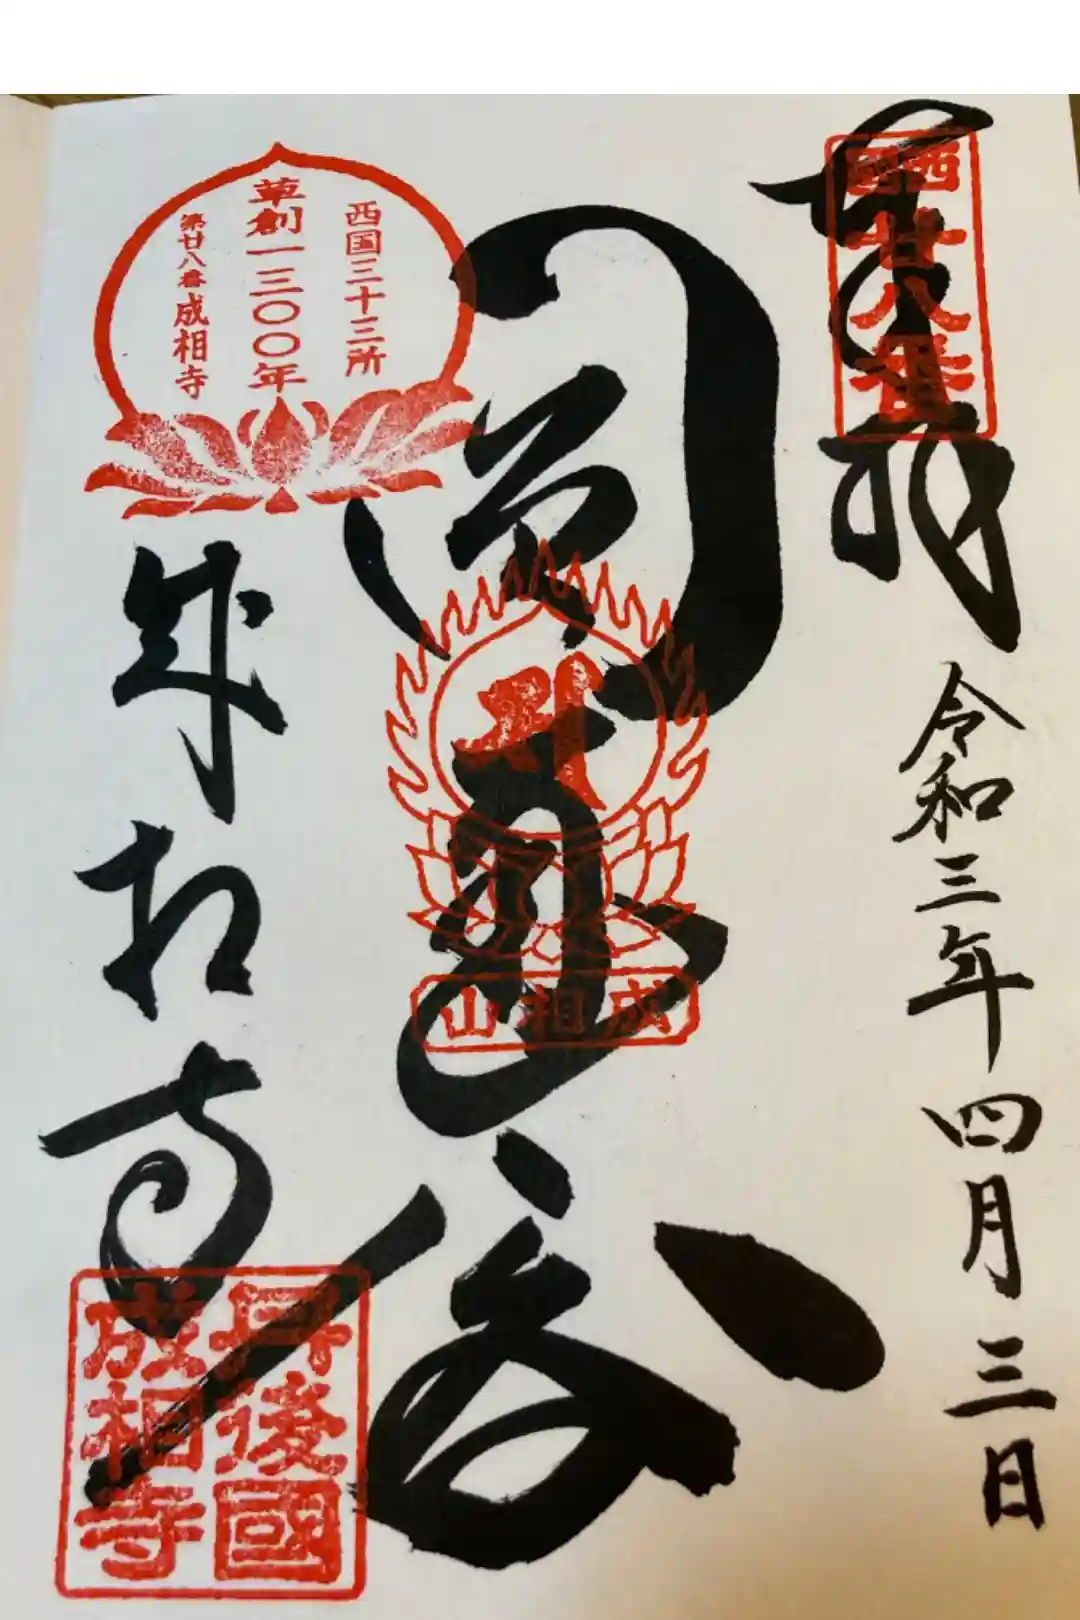 奉拝
西國廿八番
令和三年四月三日
成相山
西国三十三所
草創一三〇〇年
第廿八番成相寺
成相寺
丹後國
成相寺